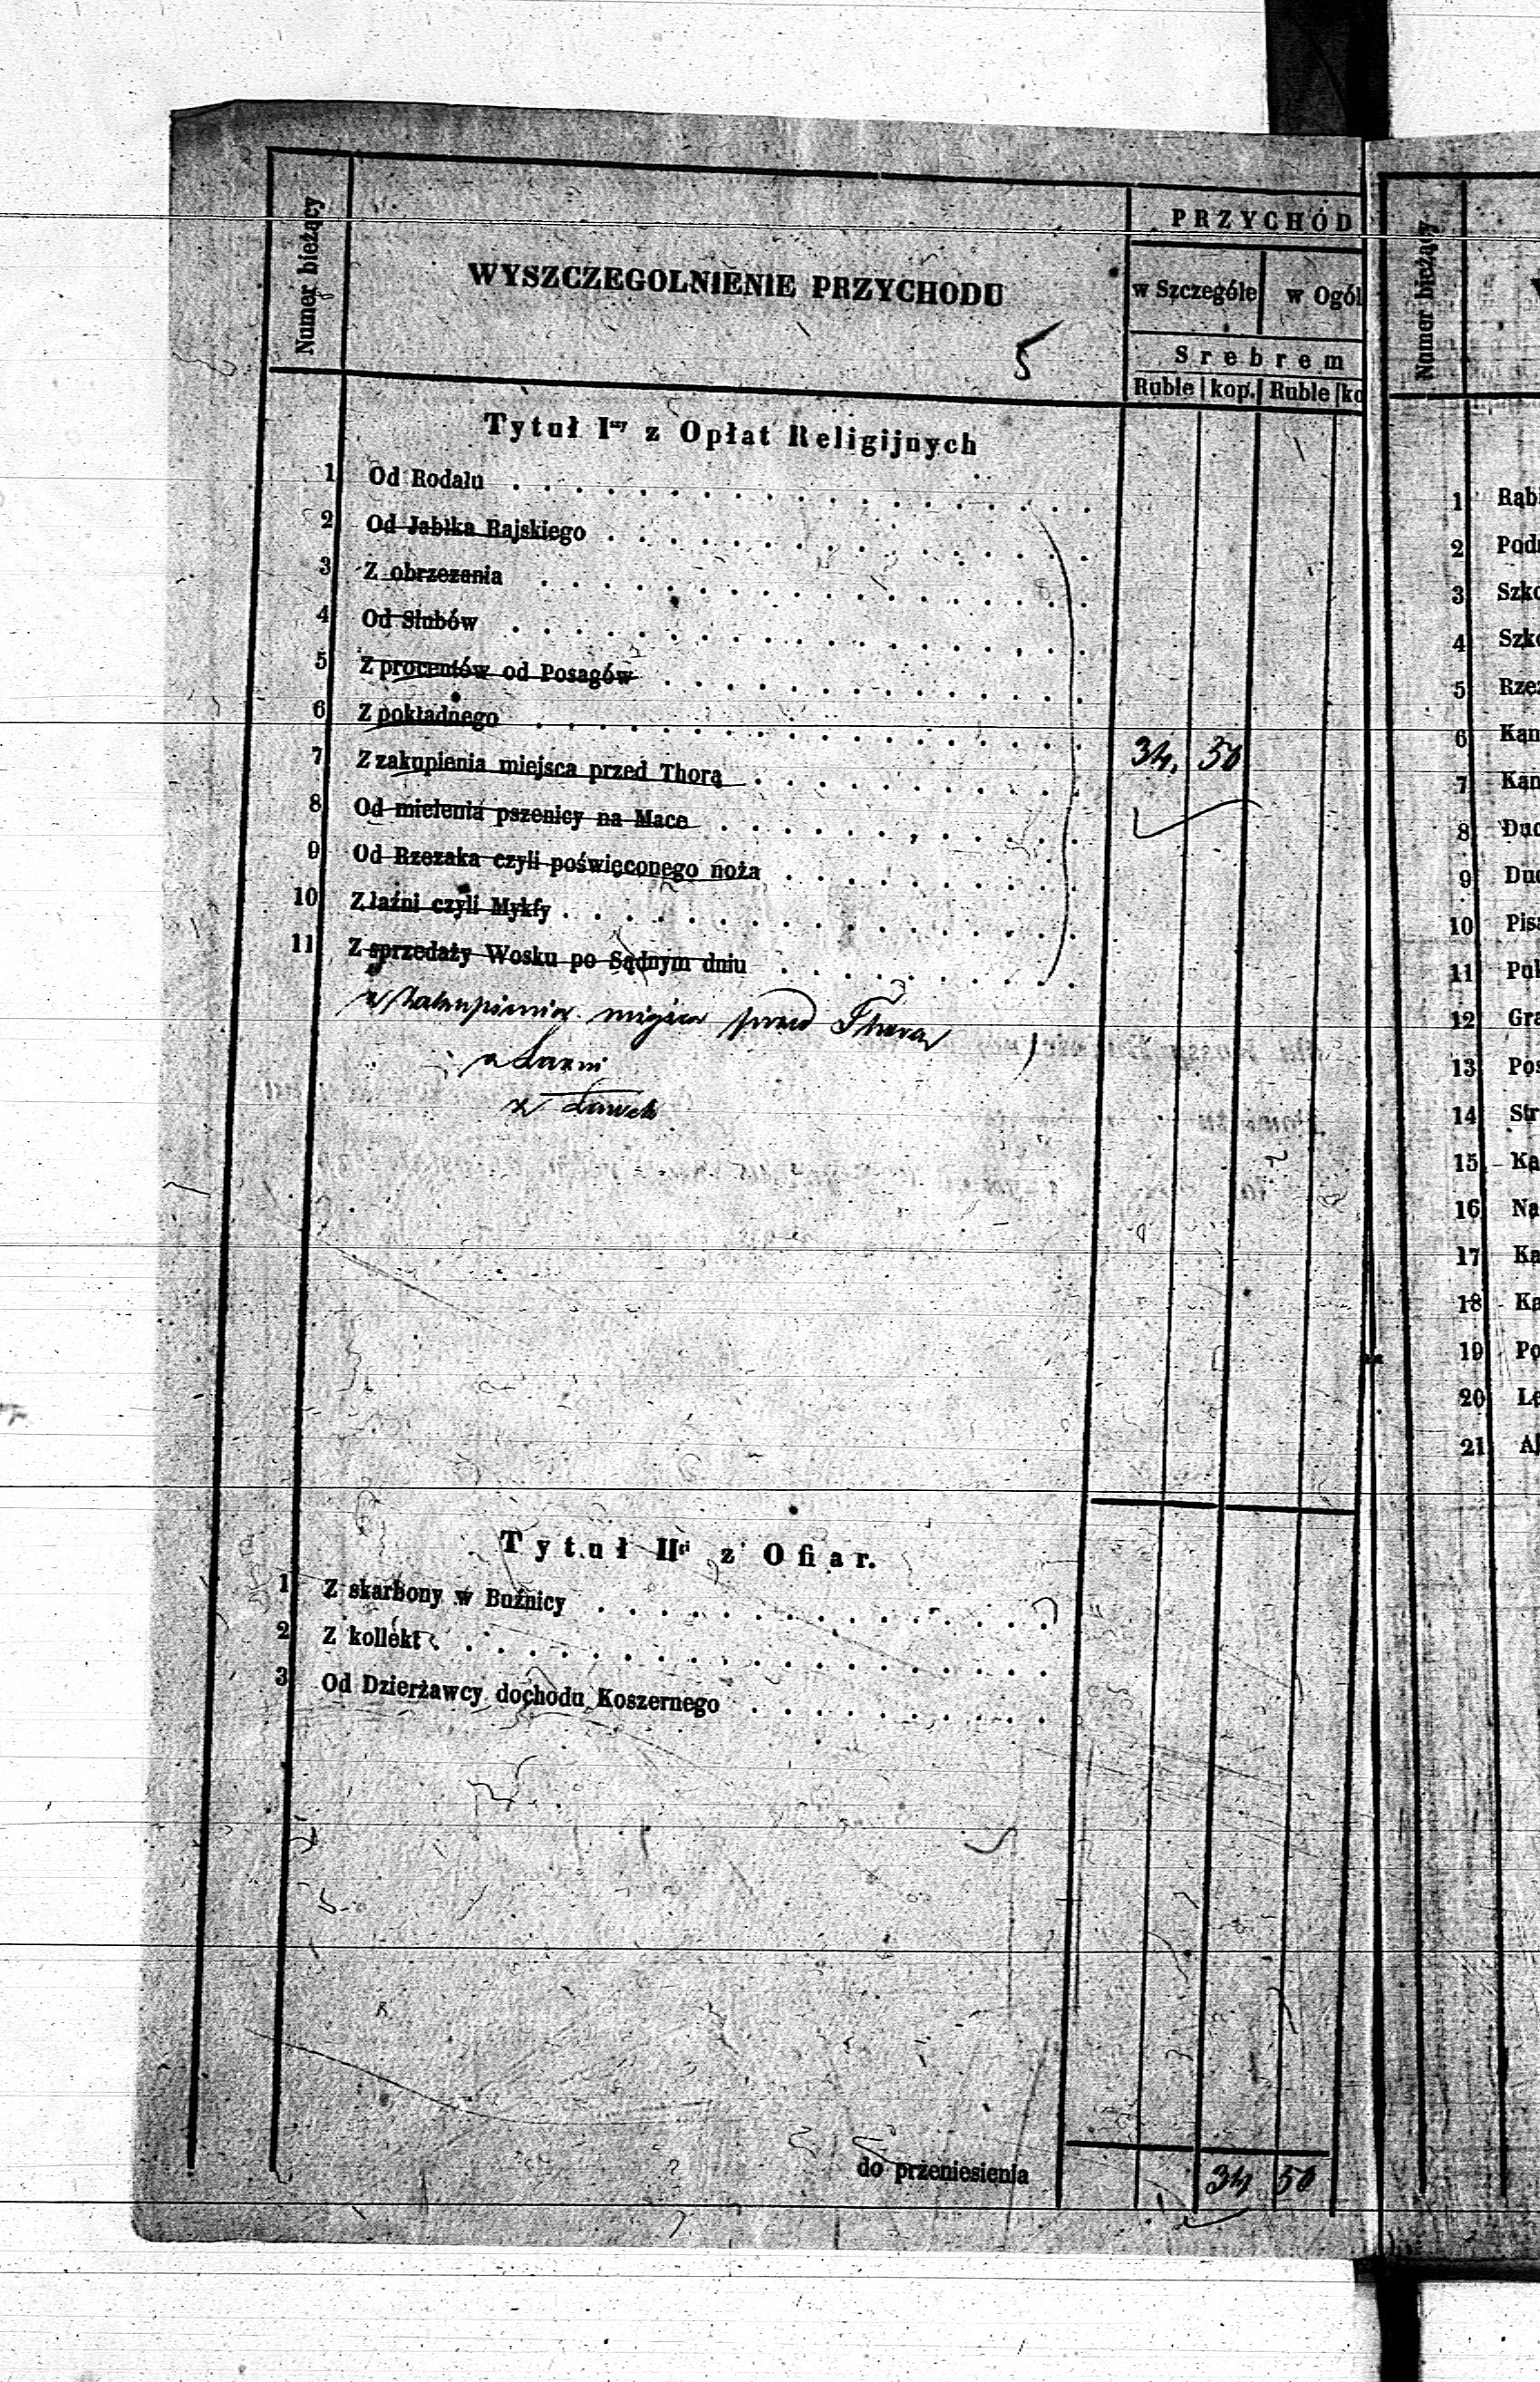 Numer bieżący
WYSZCZEGOLNIENIE PRZYCHODU
5
PRZYCHÓD
w Szczególe w Ogól
Srebrem
Ruble kop. Ruble ko
Tytuł Iszy z Opłat Religijnych
1 Od Rodału
2 Od Jabłka Rajskiego
3 Z obrzezania
4 Od Slubów
5 Z procentów od Posagów
6 Z pokładnego
7 Z zakupienia miejsca przed Thorą
34, 50
8 Od mielenia pszenicy na Mace
9 Od Rzezaka czyli poświęconego noża
10 Z łaźni czyli Mykfy
11 Z sprzedaży Wosku po Sądnym dniu
z Zakupienia miejsca przed Thorą
z Łazni
z Ławek
Tytuł IIgi z Ofiar.
1 Z skarbony w Bużnicy
2 Z kollekt
3 Od Dzierżawcy dochodu Koszernego
do przeniesienia
34 50
Numer bieżący
1 Rąb
2 Pod
3 Szko
4 Szk
5 Rze
6 Kan
7 Kan
8 Duc
9 Duc
10 Pis
11 Pul
12 Gra
13 Pos
14 Str
15 Ka
16 Na
17 Ka
18 Ka
19 Po
20 Le
21 Al